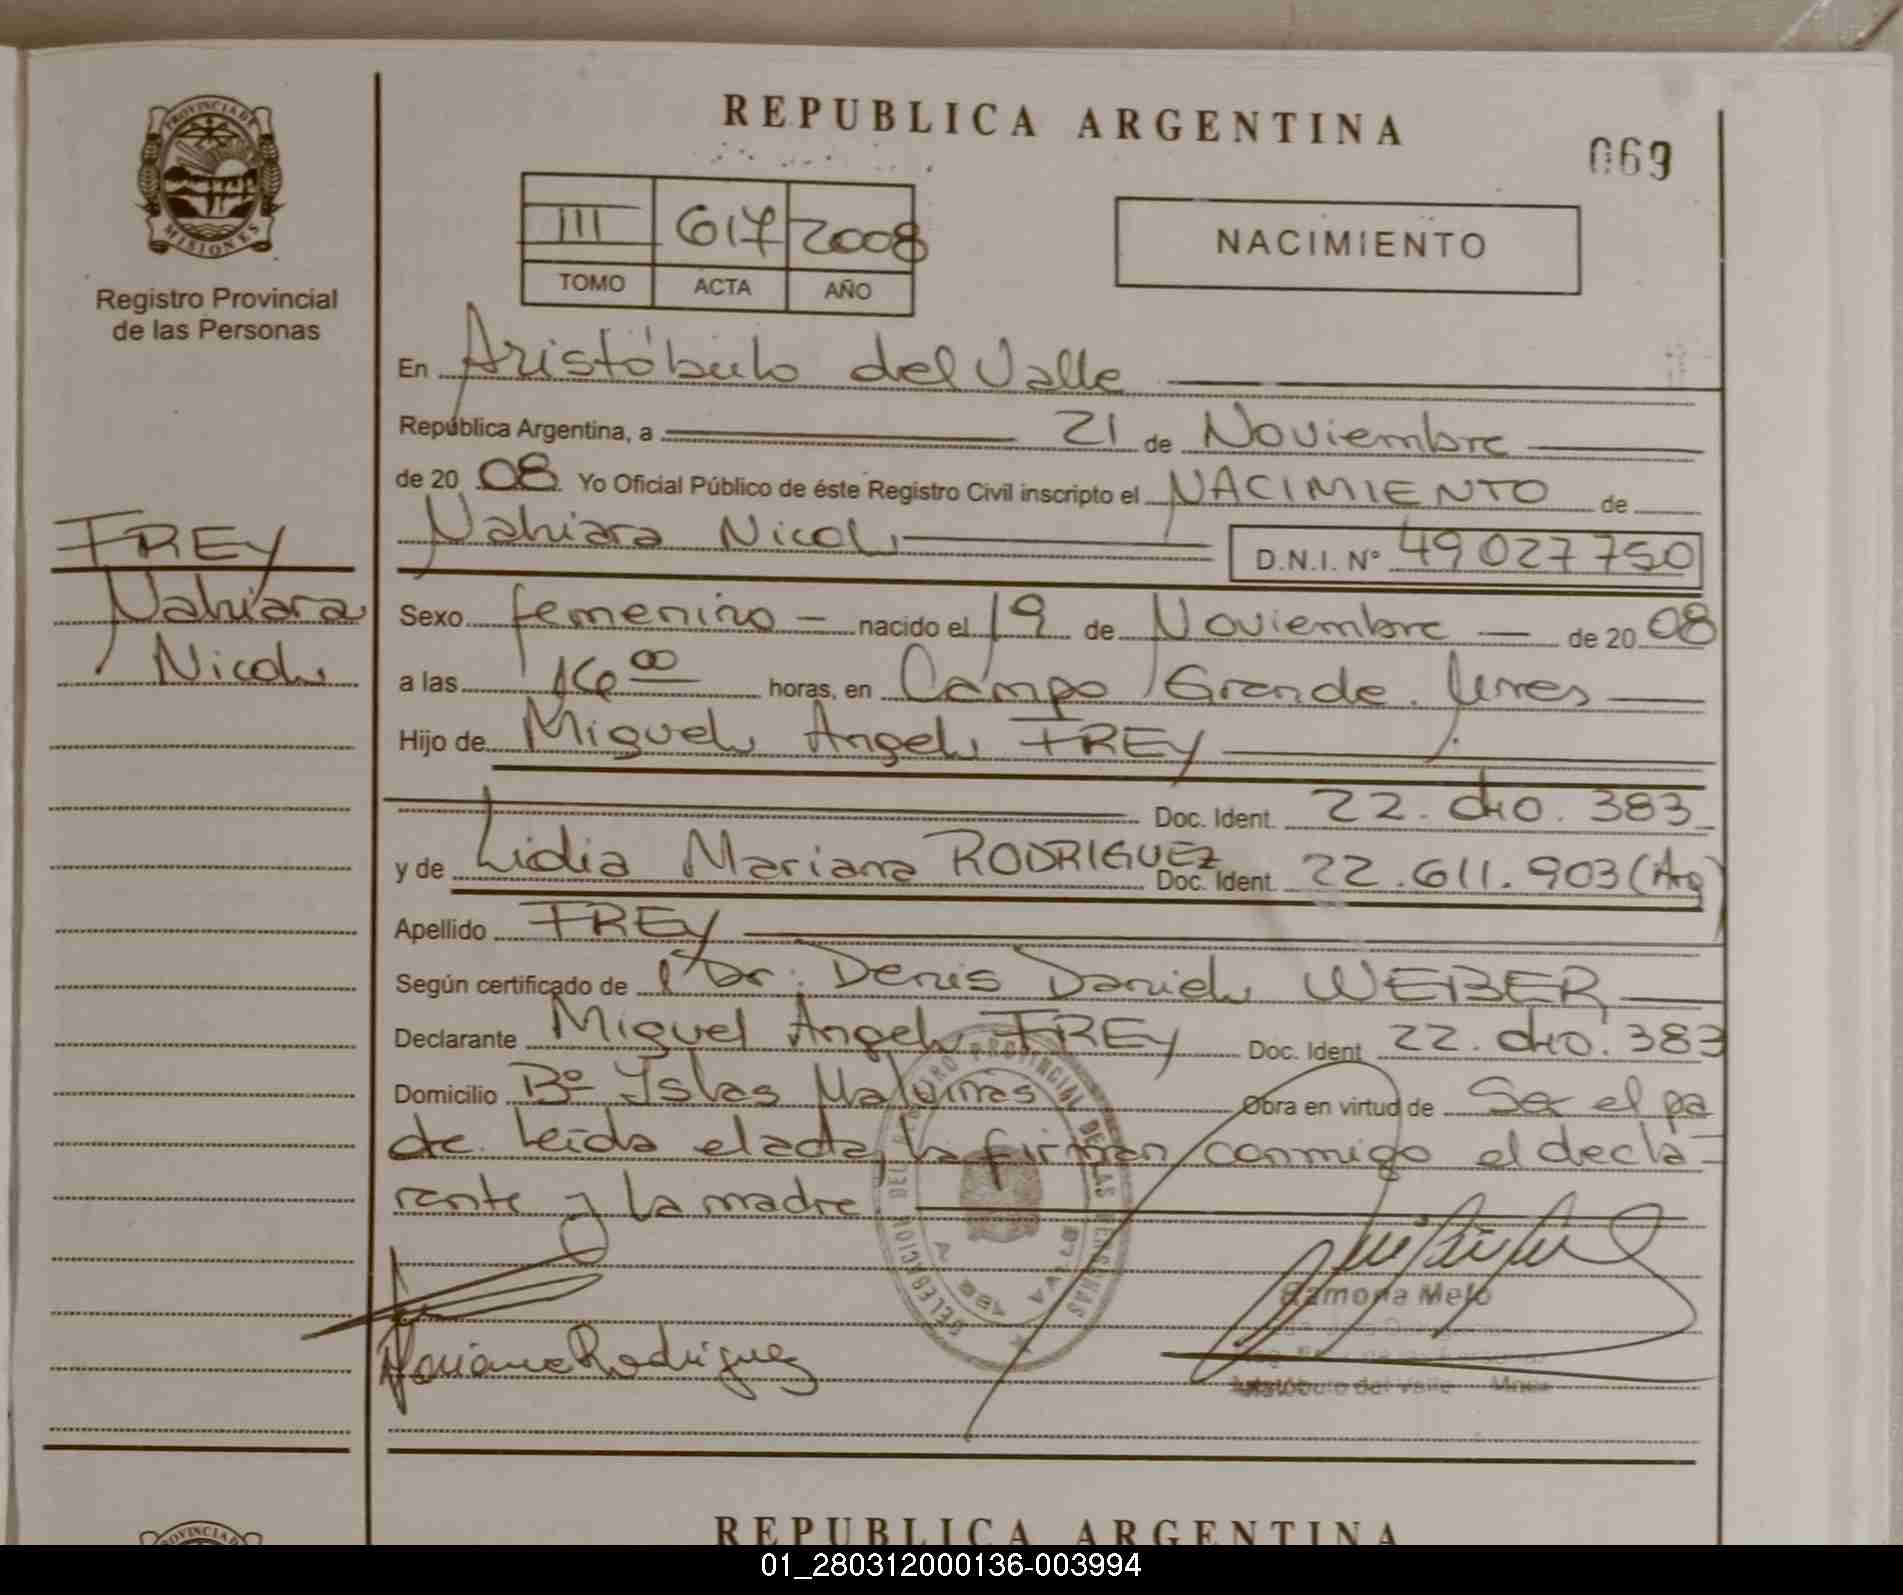 REPUBLICA ARGENTINA
069
PROVINCIA DE
MISIONES
Registro Provincial
de las Personas
III 617 2008
TOMO ACTA AÑO
NACIMIENTO
En Aristóbulo del Valle
República Argentina, a 21 de Noviembre
de 20 08 Yo Oficial Público de éste Registro Civil inscripto el NACIMIENTO de
Nahiara Nicol
D.N.I. Nº 49 027 750
FREY
Nahiara
Nicol
Sexo femenino nacido el 19 de Noviembre de 20 08
a las 16 00 horas, en Campo Grande.
Hijo de Miguel Angel FREY
Doc. Ident. 22. 383
y de Lidia Mariana RODRIGUEZ Doc. Ident 22.611.903 (Arg)
Apellido FREY
Según certificado de Dr. Denis Daniel WEIBER
Declarante Miguel Angel FREY Doc. Ident 22. 383
Domicilio Bº Islas Malvinas Obra en virtud de Ser el pa
dre. Leída el acta, la firman conmigo el decla-
rante y la madre
DELEGACION DEL REGISTRO PROVINCIAL DE LAS PERSONAS
Mariana Rodriguez
Ramona Melo
Aristóbulo del Valle
REPUBLICA ARGENTINA
PROVINCIA
01_280312000136-003994